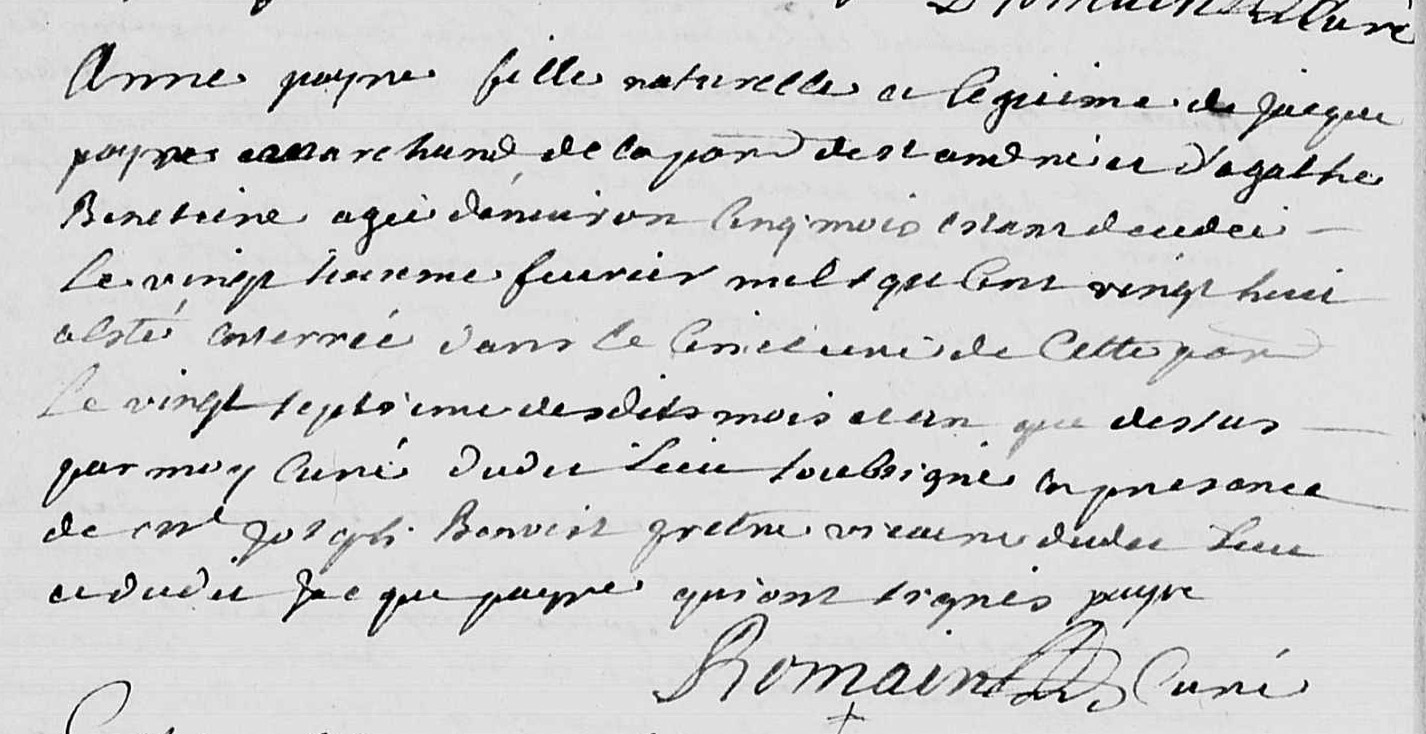 Romain Curé
Anne payre fille naturelle et legitime de jacque
payre marchand de la parr de st andré et d'agathe
agée d'environ cinq mois estant decedée
le vingt sixeme feuvrier mil sept cent vingt huit
a esté enterrée dans le cimetiere de cette parr
le vingt septieme desdits mois et an que dessus
par moy curé dudit lieu soubsigné en presance
de mr joseph Benoist pretre vicaire dudit lieu
et dudit jacque payre qui ont signés payre
Romain Curé